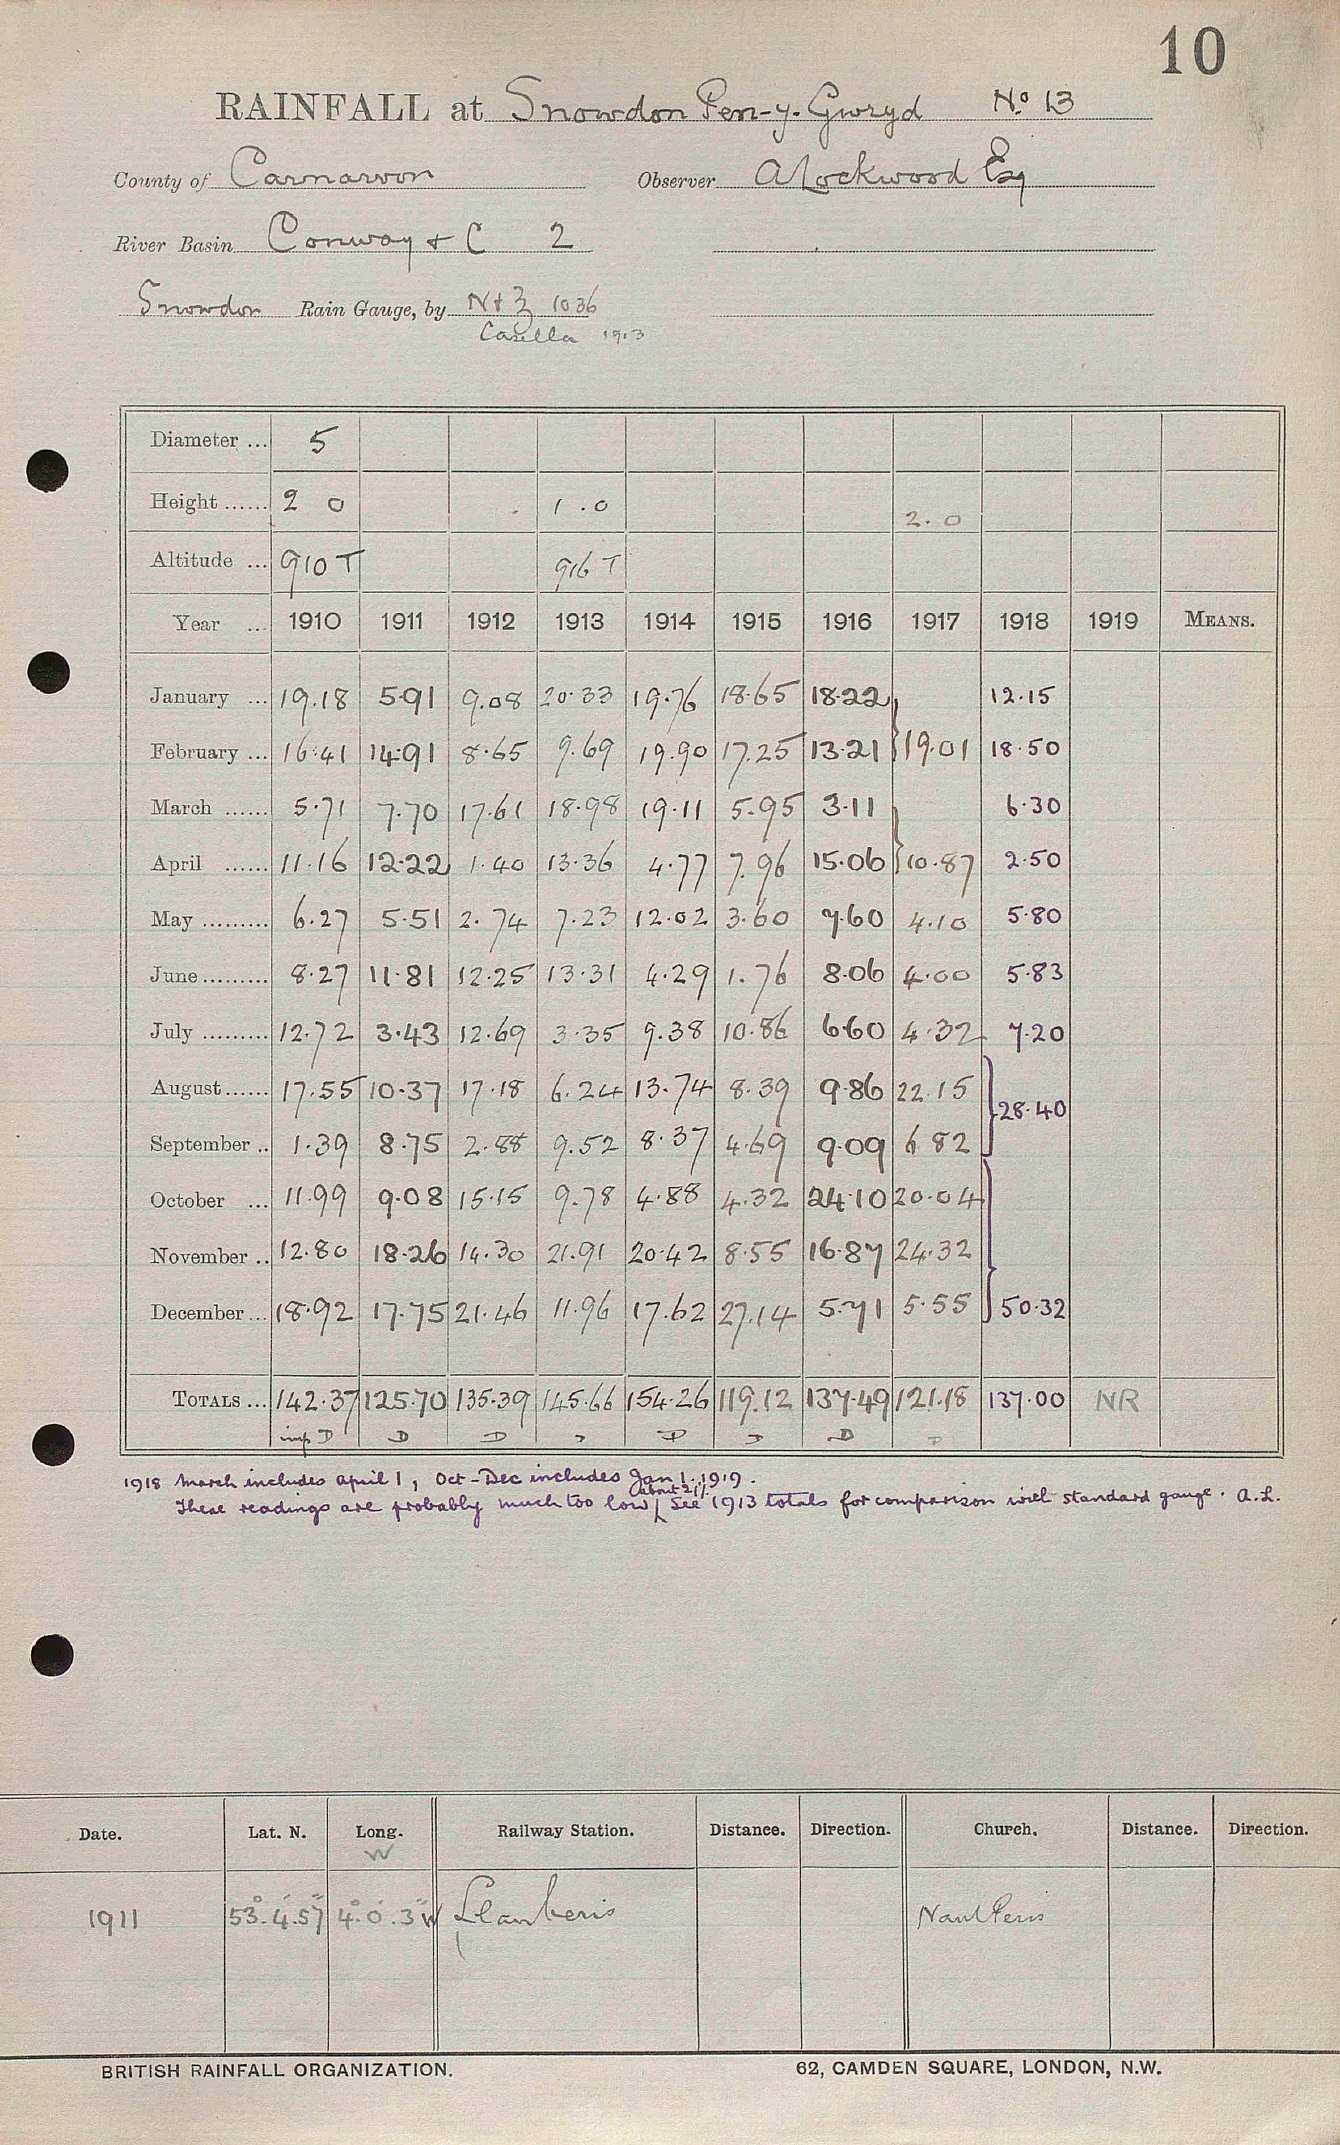 10
RAINFALL at Snowdon Pen-y-Gwryd No. 13
County of Carnarvon Observer A Lockwood Esq
River Basin Conway & C 2
Snowdon Rain Gauge, by N & Z 1036
Casella 1913
Diameter ... 5
Height ...... 2 0 1.0 2.0
Altitude ... 910 T 916 T
Year ... 1910 1911 1912 1913 1914 1915 1916 1917 1918 1919 MEANS.
January ... 19.18 5.91 9.08 20.33 19.76 18.65 18.22 12.15
February ... 16.41 14.91 8.65 9.69 19.90 17.25 13.21 19.01 18.50
March ...... 5.71 7.70 17.61 18.98 19.11 5.95 3.11 6.30
April ...... 11.16 12.22 1.40 13.36 4.77 7.96 15.06 10.87 2.50
May ......... 6.27 5.51 2.74 7.23 12.02 3.60 7.60 4.10 5.80
June ......... 8.27 11.81 12.25 13.31 4.29 1.76 8.06 4.00 5.83
July ......... 12.72 3.43 12.69 3.35 9.38 10.86 6.60 4.32 7.20
August ...... 17.55 10.37 17.18 6.24 13.74 8.39 9.86 22.15 28.40
September .. 1.39 8.75 2.88 9.52 8.37 4.69 9.09 6.82
October ... 11.99 9.08 15.15 9.78 4.88 4.32 24.10 20.04
November .. 12.80 18.26 14.30 21.91 20.42 8.55 16.87 24.32
December ... 18.92 17.75 21.46 11.96 17.62 27.14 5.71 5.55 50.32
TOTALS ... 142.37 125.70 135.39 145.66 154.26 119.12 137.49 121.18 137.00 NR
imp D D D D D D D D
1918 March includes April 1, Oct-Dec includes Jan 1. 1919.
about 21%
These readings are probably much too low See 1913 totals for comparison with standard gauge. A.L.
Date. Lat. N. Long. Railway Station. Distance. Direction. Church. Distance. Direction.
W
1911 53°.4'.57" 4°.0'.3"W Llanberis Nant Peris
BRITISH RAINFALL ORGANIZATION. 62, CAMDEN SQUARE, LONDON, N.W.